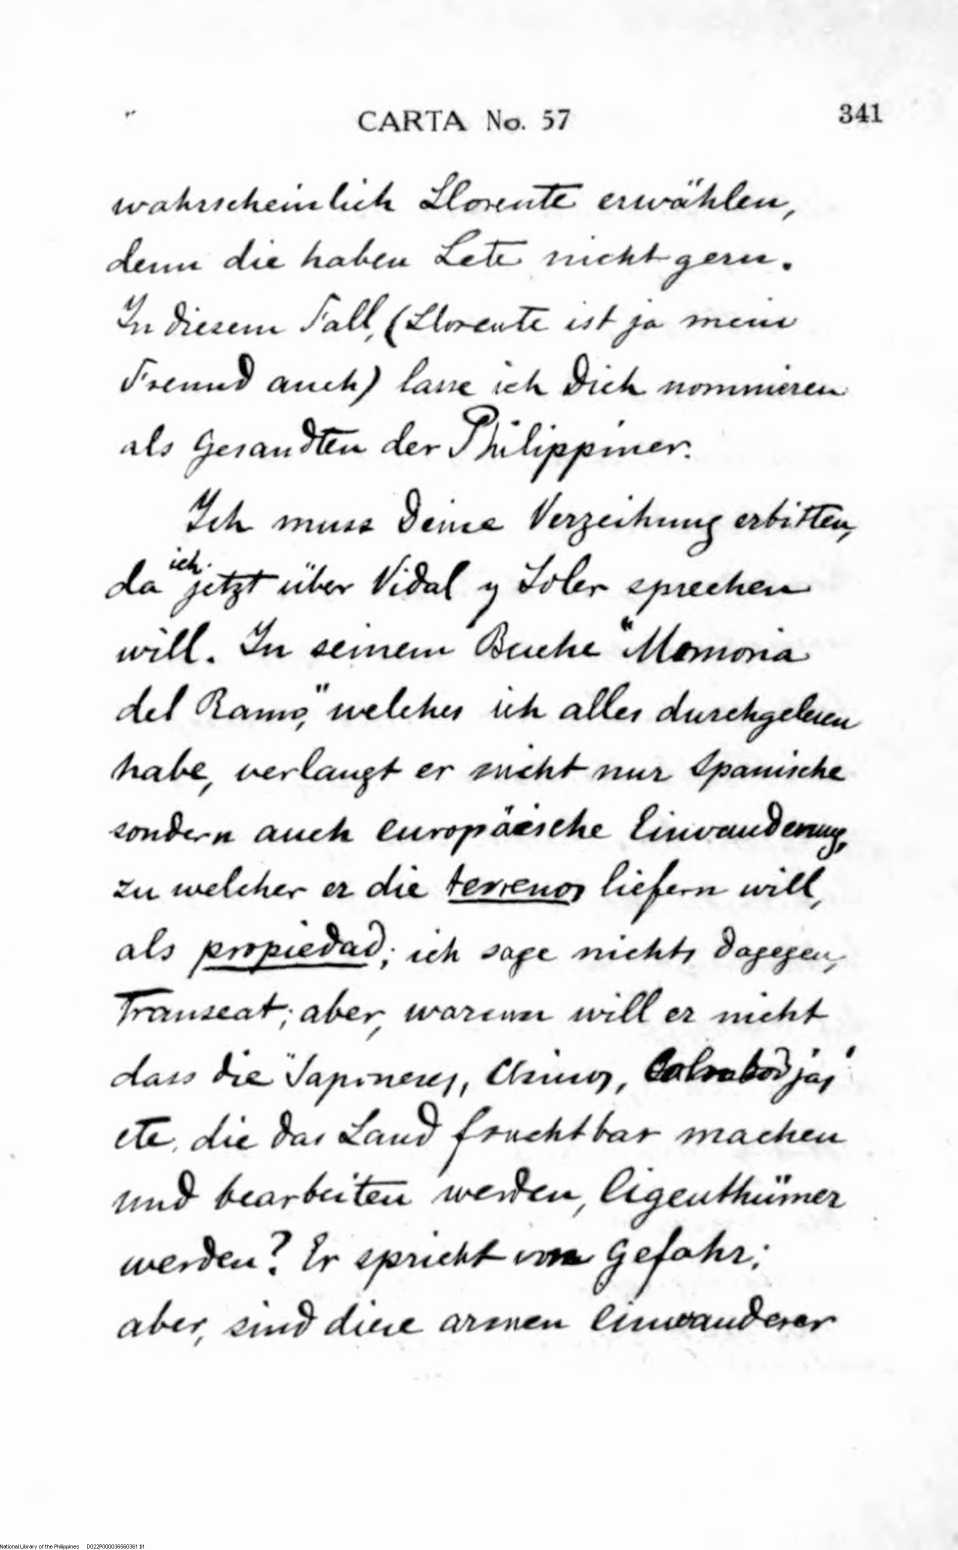 CARTA No. 57 341
wahrscheinlich Llorente erwählen,
denn die haben Lete nicht gern.
In diesem Fall, (Llorente ist ja mein
Freund auch) lasse ich Dich nommieren
als Gesandten der Philippiner.
Ich muss Deine Verzeihung erbitten,
da ich jetzt über Vidal y Soler sprechen
will. In seinem Buche "Memoria
del Ramo," welches ich alles durchgelesen
habe, verlangt er nicht nur Spanische
sondern auch europäische Einwanderung,
zu welcher er die terrenos liefern will,
als propiedad; ich sage nichts dagegen,
Transeat; aber, warum will er nicht
dass die "Japoneses, Chinos,
etc. die das Land fruchtbar machen
und bearbeiten werden, Eigenthümer
werden? Er spricht von Gefahr;
aber, sind diese armen Einwanderer
National Library of the Philippines